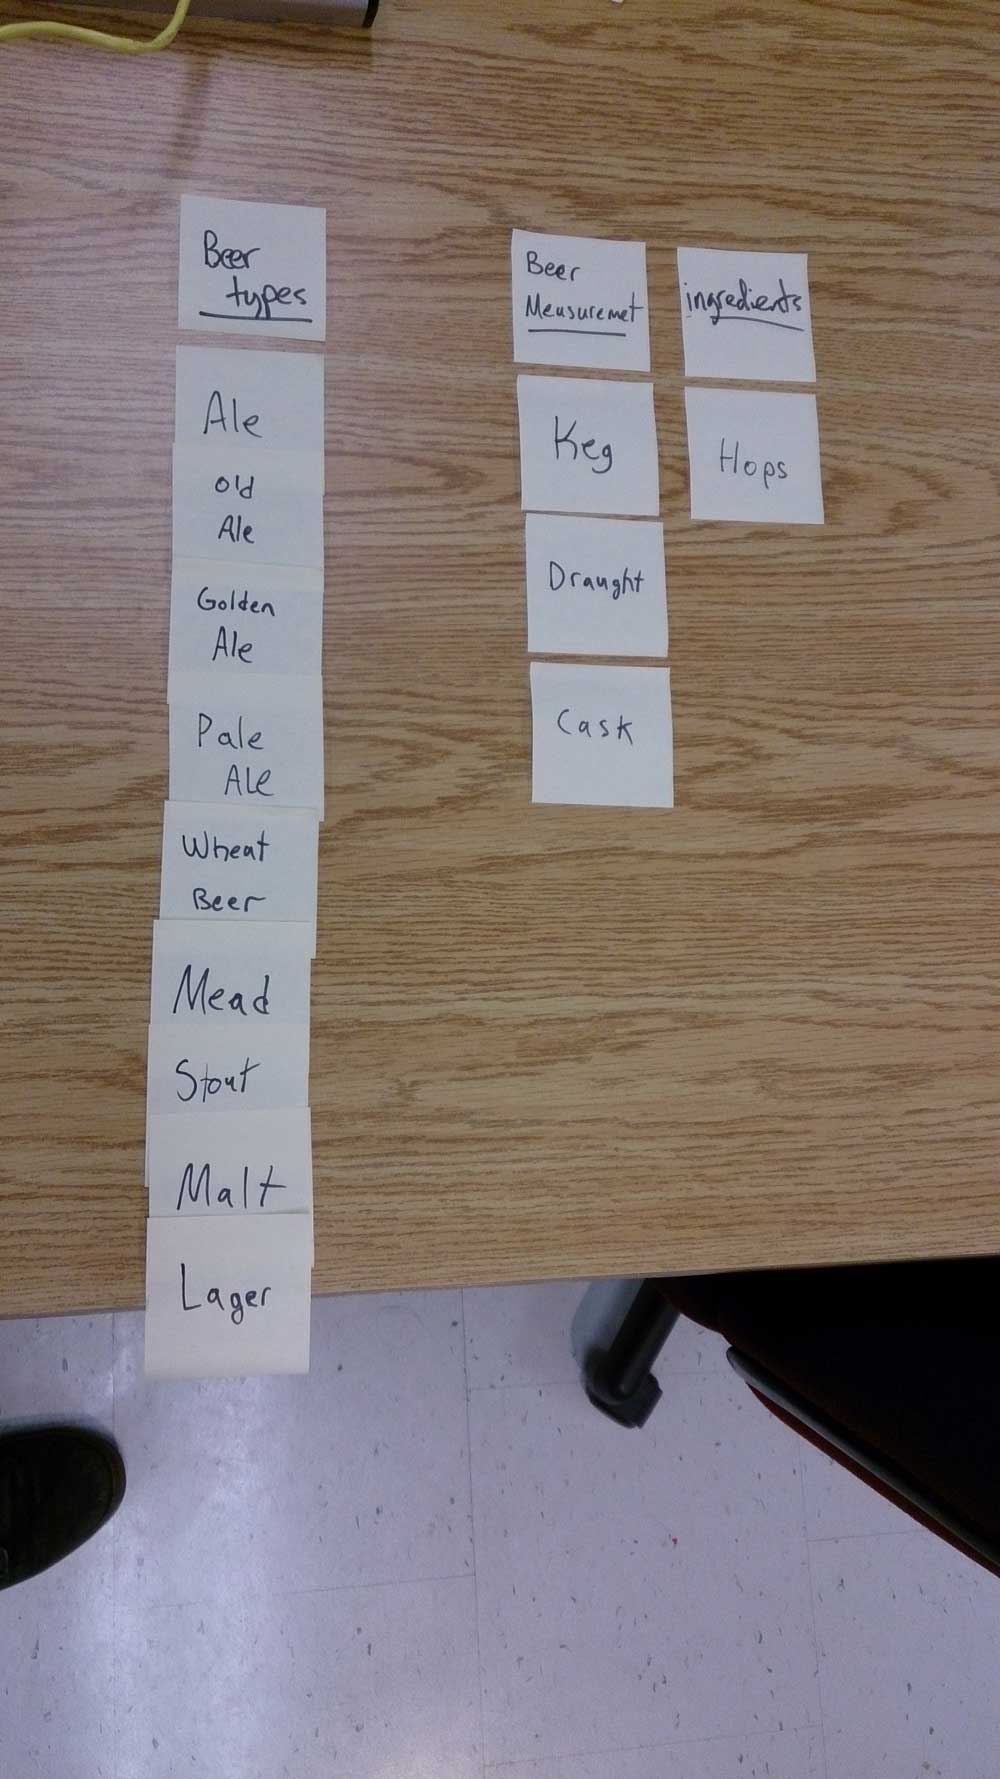 Beer
types
Ale
Old
Ale
Golden
Ale
Pale
Ale
Wheat
Beer
Mead
Stout
Malt
Lager
Beer
Measuremet
Keg
Draught
Cask
ingredients
Hops